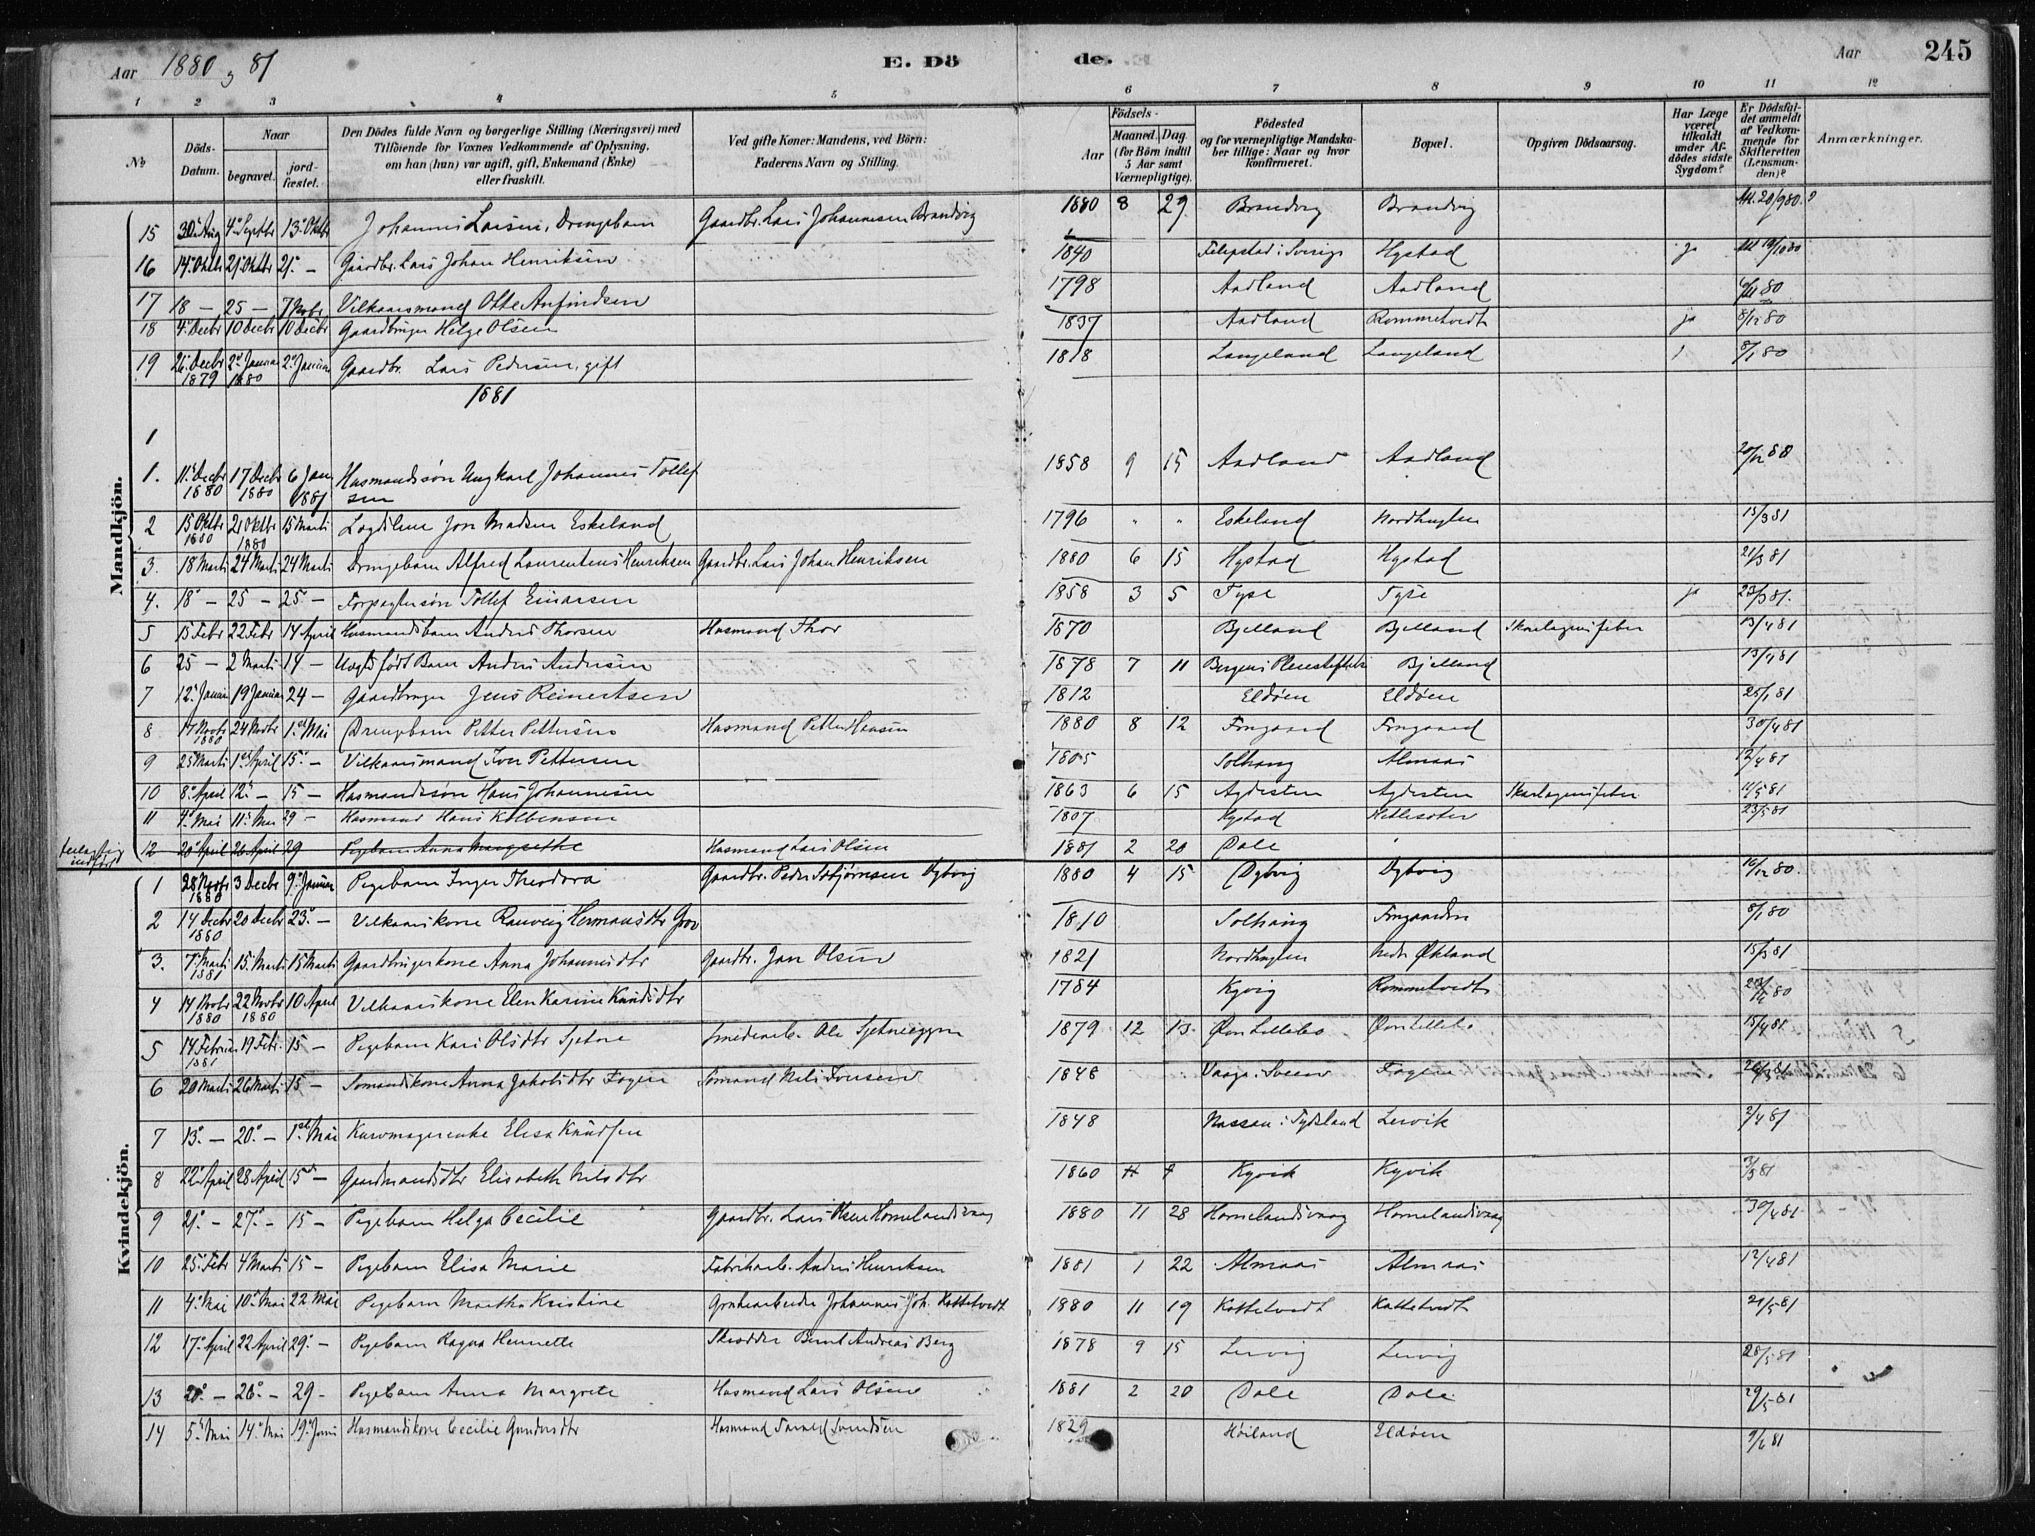 Aar 1880 og 81 E. Dö de. Aar 245
1 2 3 4 5 6 7 8 9 10 11 12
No Döds-Datum. Naar begravet. jordfæstet. Den Dödes fulde Navn og borgerlige Stilling (Næringsvei) med Tilföiende for Voxnes Vedkommende af Oplysning, om han (hun) var ugift, gift, Enkemand (Enke) eller fraskilt. Ved gifte Koner: Mandens, ved Börn: Faderens Navn og Stilling. Födsels- Aar Maaned. Dag. (for Börn indtil 5 Aar samt Værnepligtige). Födested og for værnepligtige Mandskaber tillige: Naar og hvor konfirmeret. Bopæl. Opgiven Dödsaarsag. Har Læge været tilkaldt under Afdödes sidste Sygdom? Er Dödsfaldet anmeldt af Vedkommende for Skifteretten (Lensmanden)? Anmærkninger.
Mandkjön.
15 30 Aug 4 Septbr 13 Oktbr Johannes Larsen, Drengebarn Gaardbr. Lars Johannesen Brandvig 1880 8 29 Brandvig Brandvig 20/9 80
16 14 Oktbr 21 Oktbr 21 — Gaardbr. Lars Johan Henriksen 1840 Filipstad i Sverige Hystad ja 19/10 80
17 18 — 25 — 7 Novbr Vilkaarsmand Otte Anfindsen 1798 Aadland Aadland 80
18 4 Decbr 10 Decbr 10 Decbr Gaardbruger Helge Olsen 1837 Aadland Rommetvedt ja 8/12 80
19 26 Decbr 1879 2 Januar 1880 2 Januar Gaardbr. Lars Pedersen, gift 1818 Langeland Langeland 8/1 80
1881
1
1. 11 Decbr 1880 17 Decbr 1880 6 Jan 1881 Husmandssøn Ungkarl Johannes Tollefsen 1858 9 15 Aadland Aadland 20/12 80
2 15 Oktbr 1880 21 Oktbr 1880 15 Marti Lægdslem Jon Madsen Eskeland 1796 " " Eskeland Nordhuglen 15/3 81
3. 18 Marti 24 Marti 24 Marti Drengebarn Alfred Laurentius Henriksen Gaardbr. Lars Johan Henriksen 1880 6 15 Hystad Hystad 21/3 81
4. 18 — 25 — 25 — Forpagtersøn Tollef Einarsen 1858 3 5 Tyse Tyse ja 23/3 81.
5 15 Febr 22 Febr 14 April Husmandsbarn Anders Thorsen Husmand Thor 1870 Bjelland Bjelland Skarlagensfeber 13/4 81
6 25 — 2 Marti 14 — Uægte født Barn Anders Andersen 1878 7 11 Bergens Pleiestiftelse Bjelland 13/4 81
7 12 Januar 19 Januar 24 — Gaardbruger Jens Reinertsen 1812 Eldøen Eldøen 25/1 81
8 17 Novbr 1880 24 Novbr 1ste Mai Drengebarn Petter Pettersen Husmand Petter Hansen 1880 8 12 Frugaard Frugaard 30/4 81
9 25 Marti 1ste April 15 — Vilkaarsmand Iver Pettersen 1805 Solhaug Almaas 12/4 81
10 8 April 12 — 15 — Husmandssøn Hans Johannesen 1863 6 15 Agdesten Agdesten Skarlagensfeber 11/5 81
11 4 Mai 11 Mai 29 — Husmand Hans Kolbensen 1807 Hystad Hetlesæter 23/5 81
12 20 April 26 April 29 Pigebarn Anna Margrethe Husmand Lars Olsen 1881 2 20 Dale "
Kvindekjön.
1 28 Novbr 1880 3 Decbr 9 Januar Pigebarn Inger Theodora Gaardbr. Peder Asbjørnsen Dybvig 1880 4 15 Dybvig Dybvig 16/12 80.
2 14 Decbr 1880 20 Decbr 23 — Vilkaarskone Ranveig Hermansdtr 1810 Solhaug Frugaarden 8/1 80
3. 7 Marti 1881 15. Marti 15 Marti Gaardbrugerkone Anna Johannesdtr Gaardbr. Jan Olsen 1821 Nordhuglen Nedr Økland 15/3 81
4 14 Novbr 1880 22 Novbr 1880 10 April Vilkaarskone Elen Karine Knudsdtr 1784 Kyvig Rommetvedt 80
5 14 Februar 1881 19 Febr. 15 — Pigebarn Kari Olsdtr Sjetne Ole Sjetneeggen 1879 12 13 Øvre Lillebø Øvre Lillebø 15/4 81
6 20 Marti 26 Marti 15 — Sømandskone Anna Jakobsdtr Fagen Sømand Nils Iversen 1848 Vaage i Sveen Fagen 26/3 81
7 13 — 20 — 1ste Mai Elisa Knudsen 1848 Nassau i Tydsland Lervik 2/4 81
8 22 April 28 April 15 — Gaardmandsdtr Elisabeth Nilsdtr 1860 Kyvik Kyvik 81
9 21 — 27 — 15 — Pigebarn Helga Cecilie Gaardbr. Lars Olsen Hornelandsvaag 1880 11 28 Hornelandsvaag Hornelandsvaag 30/4 81
10 25 Febr 4 Marti 15 — Pigebarn Elisa Marie Fabrikarb. Anders Henriksen 1881 1 22 Almaas Almaas 12/4 81
11 4 Mai 10 Mai 22 Mai Pigebarn Martha Kristine Grubearbeider Johannes Joh. Kattetvedt 1880 11 19 Kattetvedt Kattetvedt 21/5 81
12 17 April 22 April 29 — Pigebarn Ragna Henriette Skrædder Bernt Andreas Berg 1878 9 15 Lervig Lervig 28/5 81
13 20 — 26 — 29 - Pigebarn Anna Margrete Husmand Lars Olsen 1881 2 20 Dale Dale 29/5 81
14 5 Mai 14 Mai 19 Juni Husmandskone Cecilie Gundersdtr Husmand Svendsen 1829 Høiland Eldøen 9/6 81